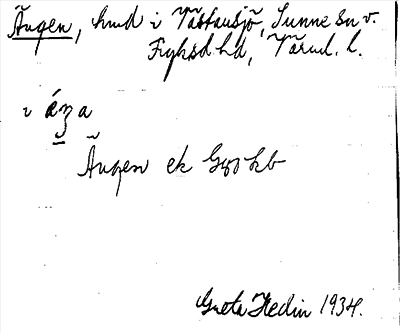 Ängen, hmd i Västansjö, Sunne sn v.
Fryksd hd, Värml. l.
i áŋa
Ängen ek GSkb
Greta Hedin 1934.